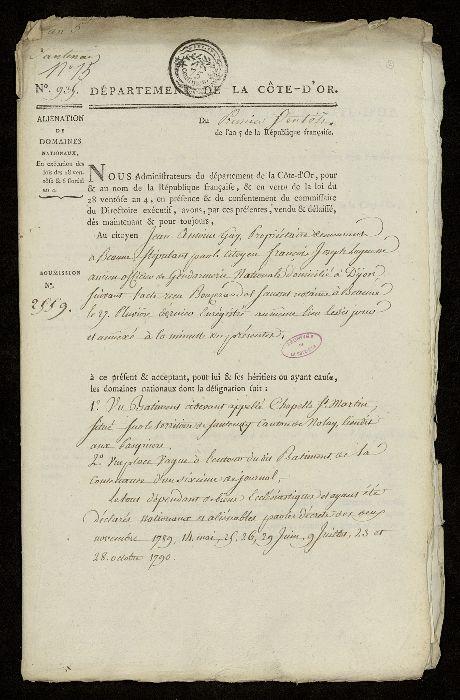 an 5
Santenay
N° 15
N°. 939. DÉPARTEMENT DE LA CÔTE-D'OR.
ALIÉNATION
DE
DOMAINES
NATIONAUX,
En exécution des
lois des 28 ven-
tôse & 6 floréal
an 4.
Du Premier Ventôse
de l'an 5 de la République française.
NOUS Administrateurs du département de la Côte-d'Or, pour
& au nom de la République française, & en vertu de la loi du
28 ventôse an 4, en présence & du consentement du commissaire
du Directoire exécutif, avons, par ces présentes, vendu & délaissé,
dès maintenant & pour toujours,
Au citoyen Jean Guy, Propriétaire demeurant
à Beaune Stipulant pour le Citoyen François Joseph
ancien officier de Gendarmerie Nationale domicilié à Dijon
suivant l'acte reçu notaire à Beaune
le 27 Pluviôse dernier Enregistré au même lieu le dit jour
et annexé à la minute des présentes,
SOUMISSION
N°.
2559.
à ce présent & acceptant, pour lui & ses héritiers ou ayant cause,
les domaines nationaux dont la désignation suit :
1° Un Batiment cidevant appellé Chapelle St. Martin,
situé sur le territoire de Santenay canton de Nolay, lieudit
aux
2° Une place vague à l'entour du dit Batiment de la
Contenance d'un sixième de journal,
Le tout dépendant de biens Ecclésiastiques et ayant été
déclarés nationaux et aliénables par les décrets des deux
novembre 1789, 14 mai, 25, 26, 29 Juin, 9 Juillet, 23 et
28 octobre 1790.